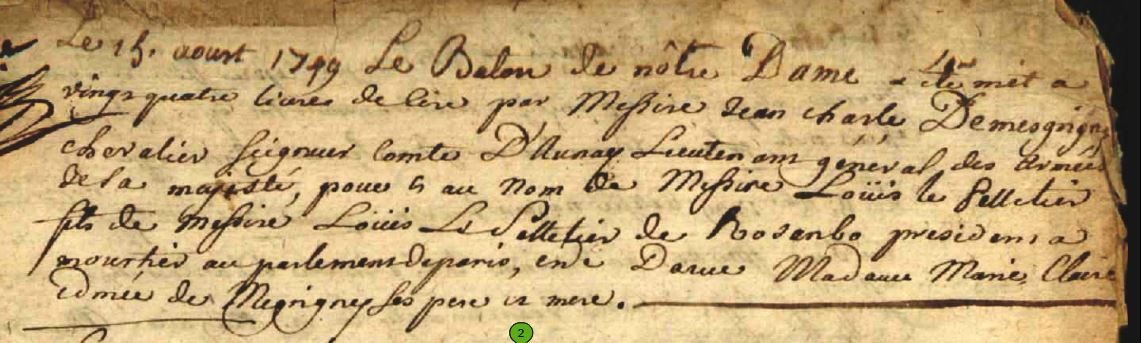 Le 15. aoust 1749 Le Baton de nôtre Dame a été mét a
vingt quatre livres de cire par Messire Jean charle Demesgrigny
chevalier seigneur comte D'Aunay Lieutenant général des armées
de la majesté, pour et au nom de Messire Loüis le Pelletier
fils de Messire Loüis Le Pelletier de Rosanbo president a
mourtier au parlement de paris, et de Dame Madame Marie Claire
Edmée de Megrigny ses pere et mere.
2